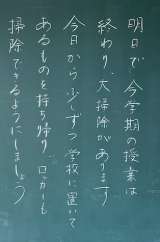 明日で、今学期の授業は
終わり、大掃除があります
今日から少しずつ学校に置いて
あるものを持ち帰り ロッカーも
掃除できるようにしましょう